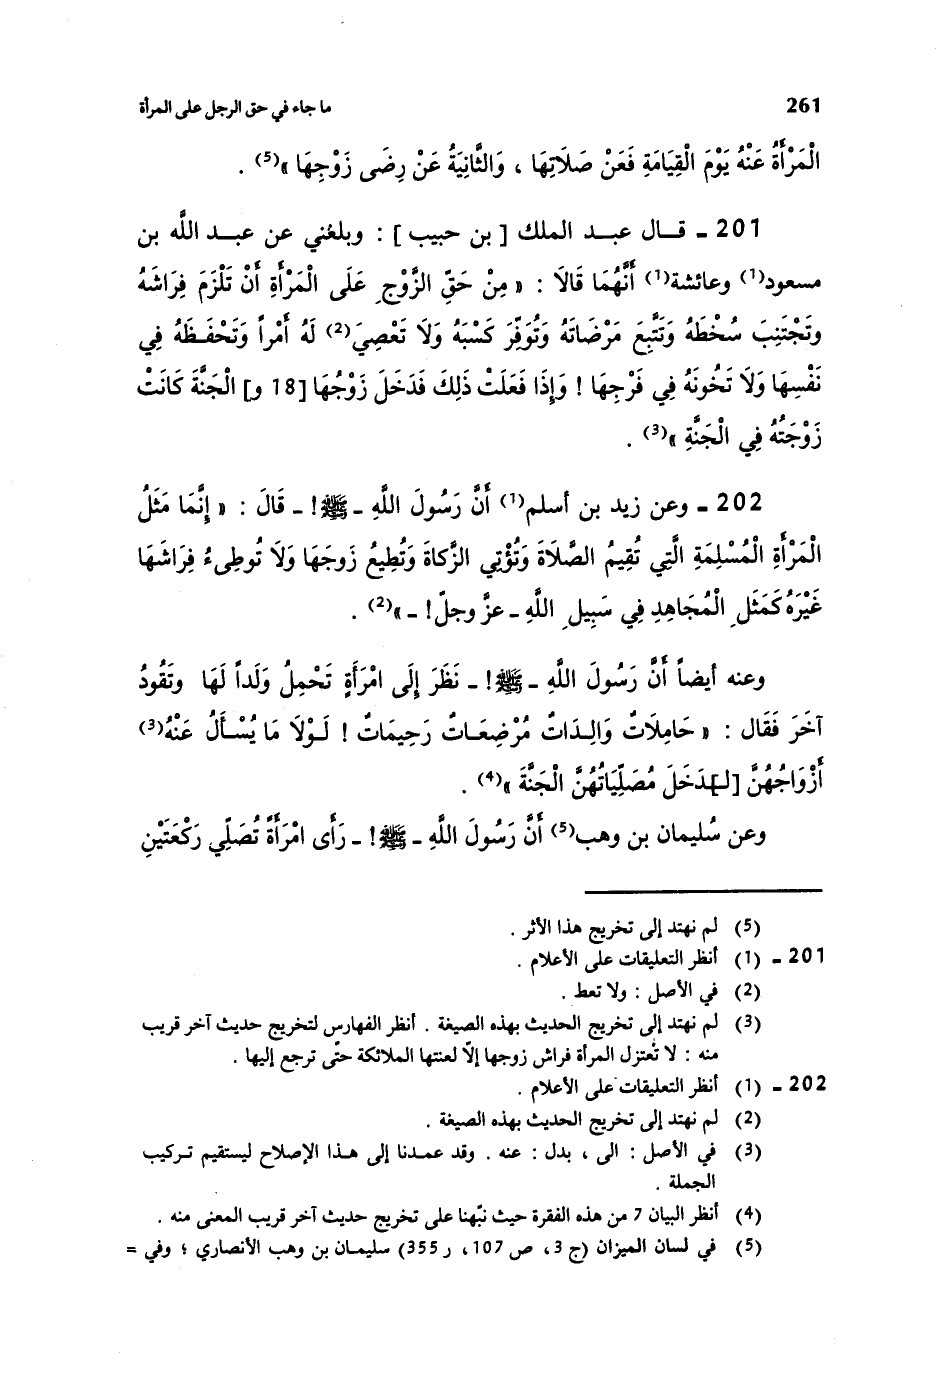 261 ما جاء في حق الرجل على المرأة
الْمَرْأَةُ عَنْهُ يَوْمَ الْقِيَامَةِ فَعَنْ صَلَاتِهَا ، وَالثَّانِيَةُ عَنْ رِضَى زَوْجِهَا »(5) .
201 ـ قـال عبـد الملك [ بن حبيب ] : وبلغني عن عبـد اللَّه بن
مسعود(1) وعائشة(1) أَنَّهُمَا قَالَا : « مِنْ حَقِّ الزَّوْجِ عَلَى الْمَرْأَةِ أَنْ تَلْزَمَ فِرَاشَهُ
وتَجْتَنِبَ سُخْطَهُ وَتَتَّبِعَ مَرْضَاتَهُ وَتُوَفِّرَ كَسْبَهُ وَلَا تَعْصِيَ(2) لَهُ أَمْراً وَتَحْفَـظَهُ فِي
نَفْسِهَا وَلَا تَخُونَهُ فِي فَرْجِهَا ! وَإِذَا فَعَلَتْ ذَلِكَ فَدَخَلَ زَوْجُهَا [18 و] الْجَنَّةَ كَانَتْ
زَوْجَتُهُ فِي الْجَنَّةِ »(3) .
202 ـ وعن زيد بن أسلم(1) أَنَّ رَسُولَ اللَّهِ ـ ﷺ! ـ قَالَ : « إِنَّمَا مَثَلُ
الْمَرْأَةِ الْمُسْلِمَةِ الَّتِي تُقِيمُ الصَّلَاةَ وَتُؤْتِي الزَّكاةَ وَتُطِيعُ زَوجَهَا وَلَا تُوطِىءُ فِرَاشَهَا
غَيْرَهُ كَمَثَلِ الْمُجَاهِدِ فِي سَبِيلِ اللَّهِ ـ عزَّ وجلّ! ـ »(2) .
وعنه أيضاً أَنَّ رَسُولَ اللَّهِ ـ ﷺ! ـ نَظَرَ إِلَى امْرَأَةٍ تَحْمِلُ وَلَداً لَهَا وتَقُودُ
آخَرَ فَقَال : « حَامِلَاتٌ وَالِـدَاتٌ مُرْضِعَـاتٌ رَحِيمَاتٌ ! لَـوْلَا مَا يُسْـأَلُ عَنْهُ(3)
أَزْوَاجُهُنَّ [لـ]ـدَخَلَ مُصَلِّيَاتُهُنَّ الْجَنَّةَ »(4) .
وعن سُليمان بن وهب(5) أَنَّ رَسُولَ اللَّهِ ـ ﷺ! ـ رَأَى امْرَأَةً تُصَلِّي رَكْعَتَيْنِ
(5) لم نهتد إلى تخريج هذا الأثر .
201 ـ (1) أنظر التعليقات على الأعلام .
(2) في الأصل : ولا تعط .
(3) لم نهتد إلى تخريج الحديث بهذه الصيغة . أنظر الفهارس لتخريج حديث آخر قريب
منه : لا تُعتزل المرأة فراش زوجها إلّا لعنتها الملائكة حتّى ترجع إليها .
202 ـ (1) أنظر التعليقات على الأعلام .
(2) لم نهتد إلى تخريج الحديث بهذه الصيغة .
(3) في الأصل : الى ، بدل : عنه . وقد عمـدنا إلى هـذا الإصلاح ليستقيم تـركيب
الجملة .
(4) أنظر البيان 7 من هذه الفقرة حيث نبّهنا على تخريج حديث آخر قريب المعنى منه .
(5) في لسان الميزان (ج 3، ص 107، ر 355) سليمـان بن وهب الأنصاري ؛ وفي =